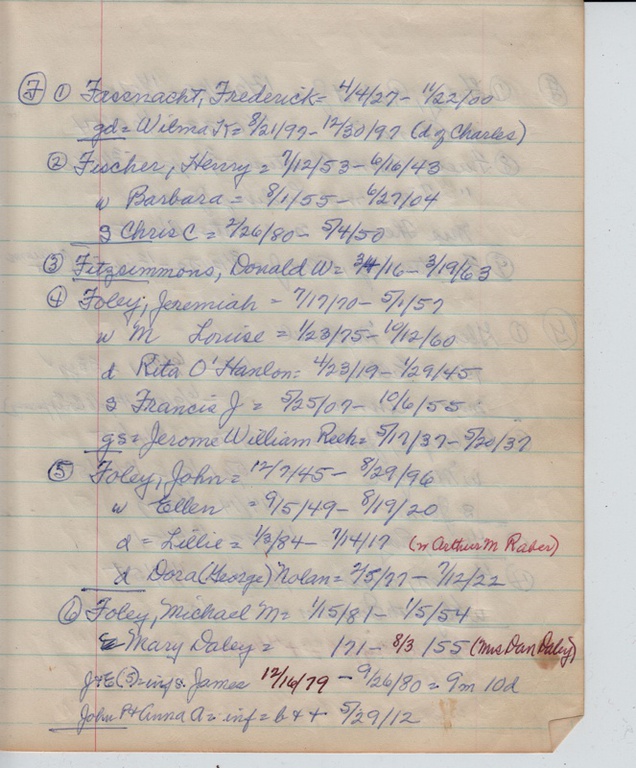 F ① Fassnacht, Frederick = 4/4/27 - 11/22/00
gd = Wilma K = 8/21/97 - 12/30/97 (d of Charles)
② Fischer, Henry = 7/12/53 - 6/16/43
w Barbara = 8/1/55 - 6/27/04
s Chris C = 2/26/80 - 5/4/50
③ Fitzsimmons, Donald W = /16 - 3/19/63
④ Foley, Jeremiah = 7/17/70 - 5/1/57
w M Louise = 1/23/75 - 10/12/60
d Rita O'Hanlon = 4/23/19 - 1/29/45
s Francis J = 5/25/07 - 10/6/55
gs = Jerome William Reek = 5/17/37 - 5/20/37
⑤ Foley, John = 12/7/45 - 8/29/96
w Ellen = 9/5/49 - 8/19/20
d = Lillie = 1/3/84 - 7/14/17 (w Arthur M Raber)
d Dora (George) Nolan = 2/5/77 - 7/12/22
⑥ Foley, Michael M = 1/15/81 - 1/5/54
Mary Daley = 171 - 8/3 155 (Mrs Dan Daley)
J+E (5) = inf s. James 12/16/79 - 9/26/80 = 9m 10d
John P + Anna A = inf = b + + 5/29/12